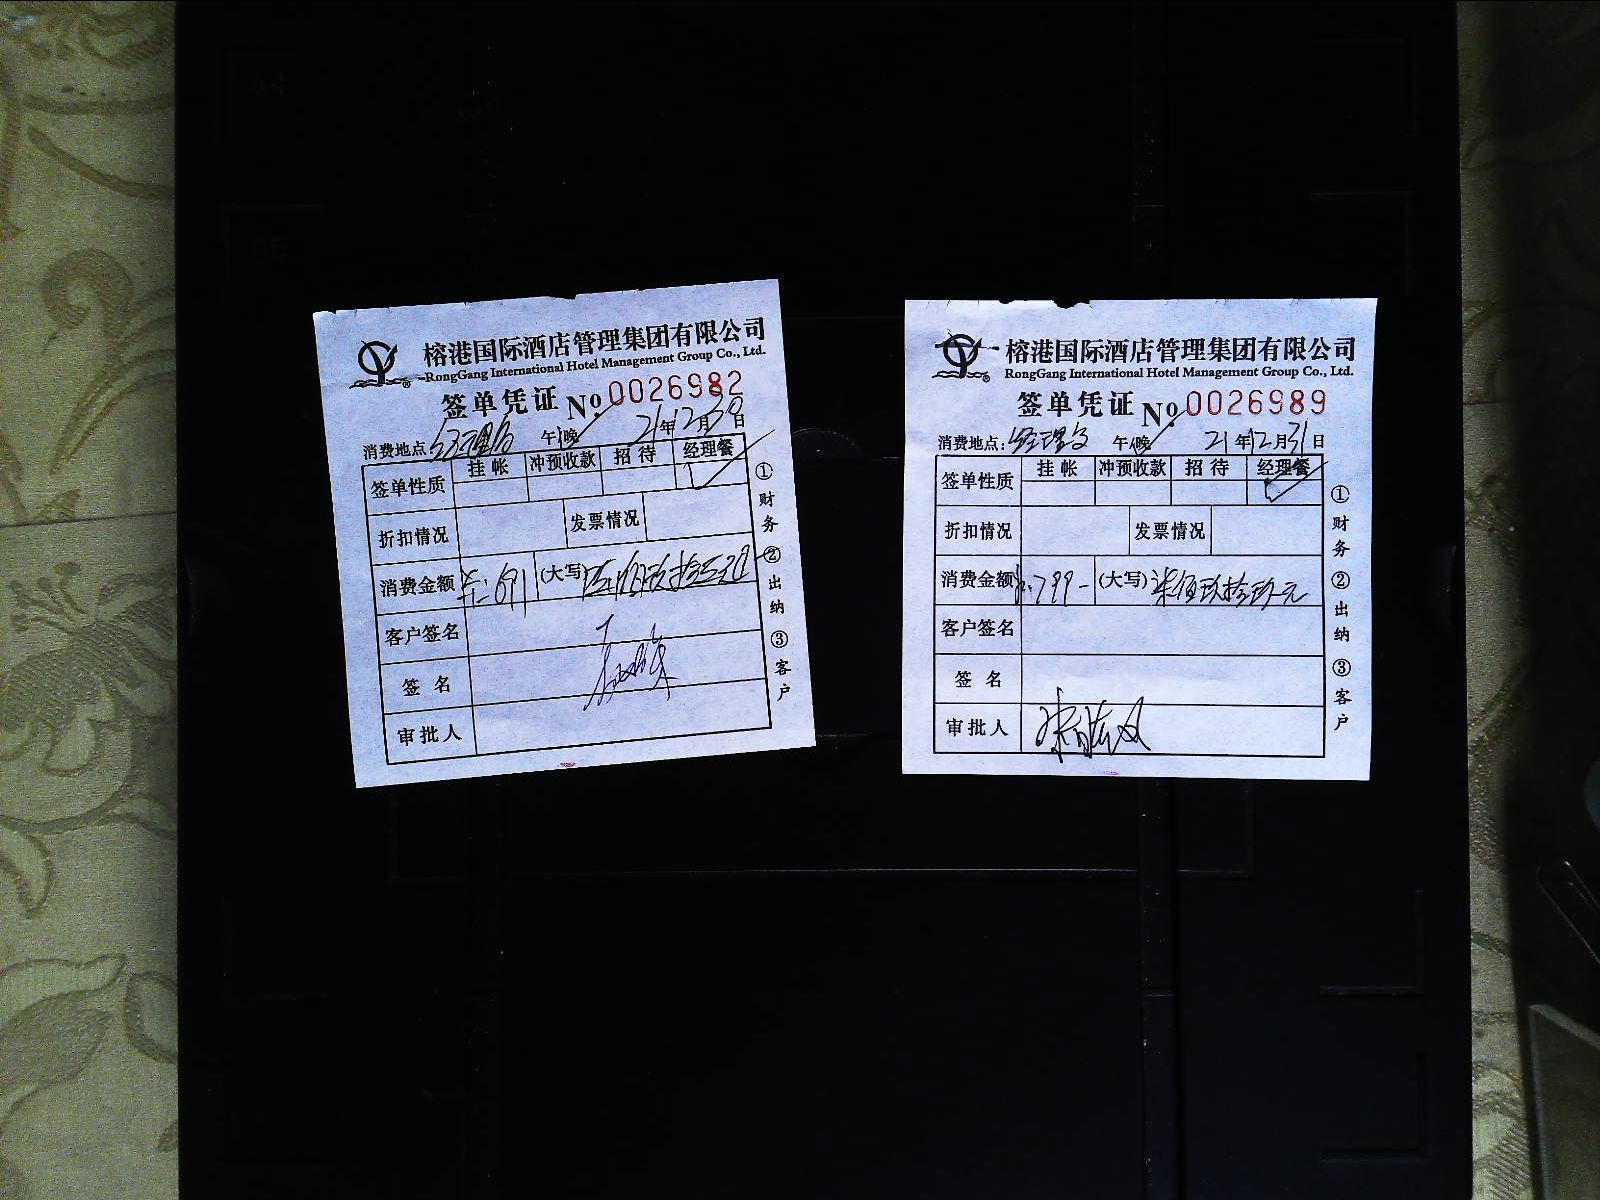 榕港国际酒店管理集团有限公司
RongGang International Hotel Management Group Co., Ltd.
签单凭证 No. 0026982
消费地点: 午/晚 21年12月30日
签单性质 挂帐 冲预收款 招待 经理餐
折扣情况 发票情况
消费金额 691 (大写)
客户签名
签名
审批人
①财务 ②出纳 ③客户
榕港国际酒店管理集团有限公司
RongGang International Hotel Management Group Co., Ltd.
签单凭证 No. 0026989
消费地点: 午/晚 21年12月31日
签单性质 挂帐 冲预收款 招待 经理餐
折扣情况 发票情况
消费金额 799- (大写)柒佰玖拾玖元
客户签名
签名
审批人
①财务 ②出纳 ③客户